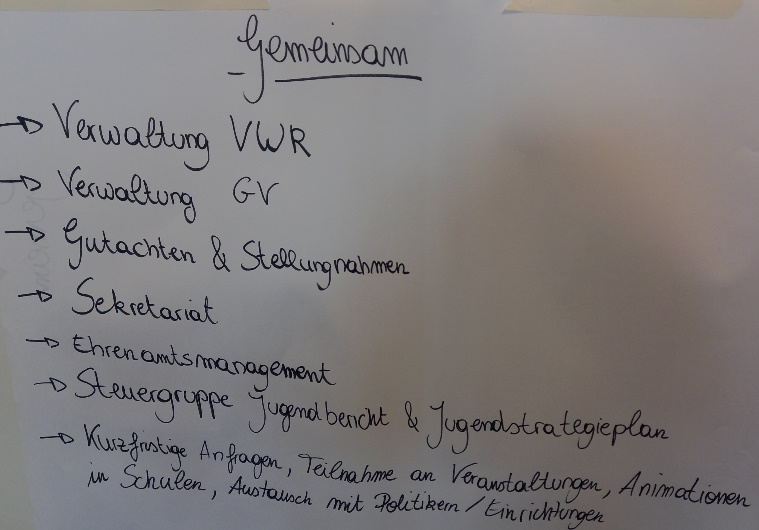 Gemeinsam
→ Verwaltung VWR
→ Verwaltung GV
→ Gutachten & Stellungnahmen
→ Sekretariat
→ Ehrenamtsmanagement
→ Steuergruppe Jugendbericht & Jugendstrategieplan
→ Kurzfristige Anfragen, Teilnahme an Veranstaltungen, Animationen
in Schulen, Austausch mit Politikern / Einrichtungen